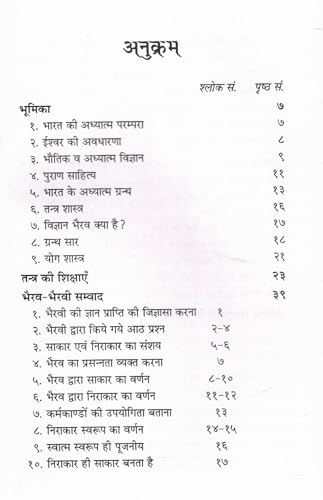 अनुक्रम
श्लोक सं. पृष्ठ सं.
भूमिका ७
१. भारत की अध्यात्म परम्परा ७
२. ईश्वर की अवधारणा ८
३. भौतिक व अध्यात्म विज्ञान ९
४. पुराण साहित्य ११
५. भारत के अध्यात्म ग्रन्थ १३
६. तन्त्र शास्त्र १६
७. विज्ञान भैरव क्या है? १७
८. ग्रन्थ सार १८
९. योग शास्त्र २१
तन्त्र की शिक्षाएँ २३
भैरव-भैरवी सम्वाद ३९
१. भैरवी की ज्ञान प्राप्ति की जिज्ञासा करना १
२. भैरवी द्वारा किये गये आठ प्रश्न २-४
३. साकार एवं निराकार का संशय ५-६
४. भैरव का प्रसन्नता व्यक्त करना ७
५. भैरव द्वारा साकार का वर्णन ८-१०
६. भैरव द्वारा निराकार का वर्णन ११-१२
७. कर्मकाण्डों की उपयोगिता बताना १३
८. निराकार स्वरूप का वर्णन १४-१५
९. स्वात्म स्वरूप ही पूजनीय १६
१०. निराकार ही साकार बनता है १७